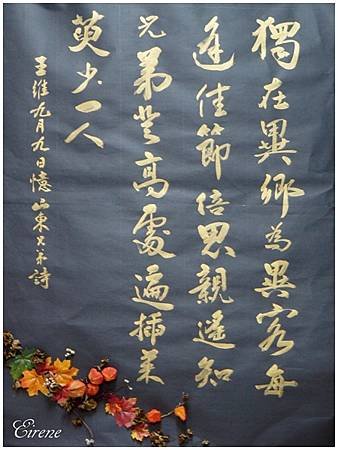 獨在異鄉為異客每
逢佳節倍思親遙知
兄弟登高處遍插茱
萸少一人
王維九月九日憶山東兄弟詩
Eirene